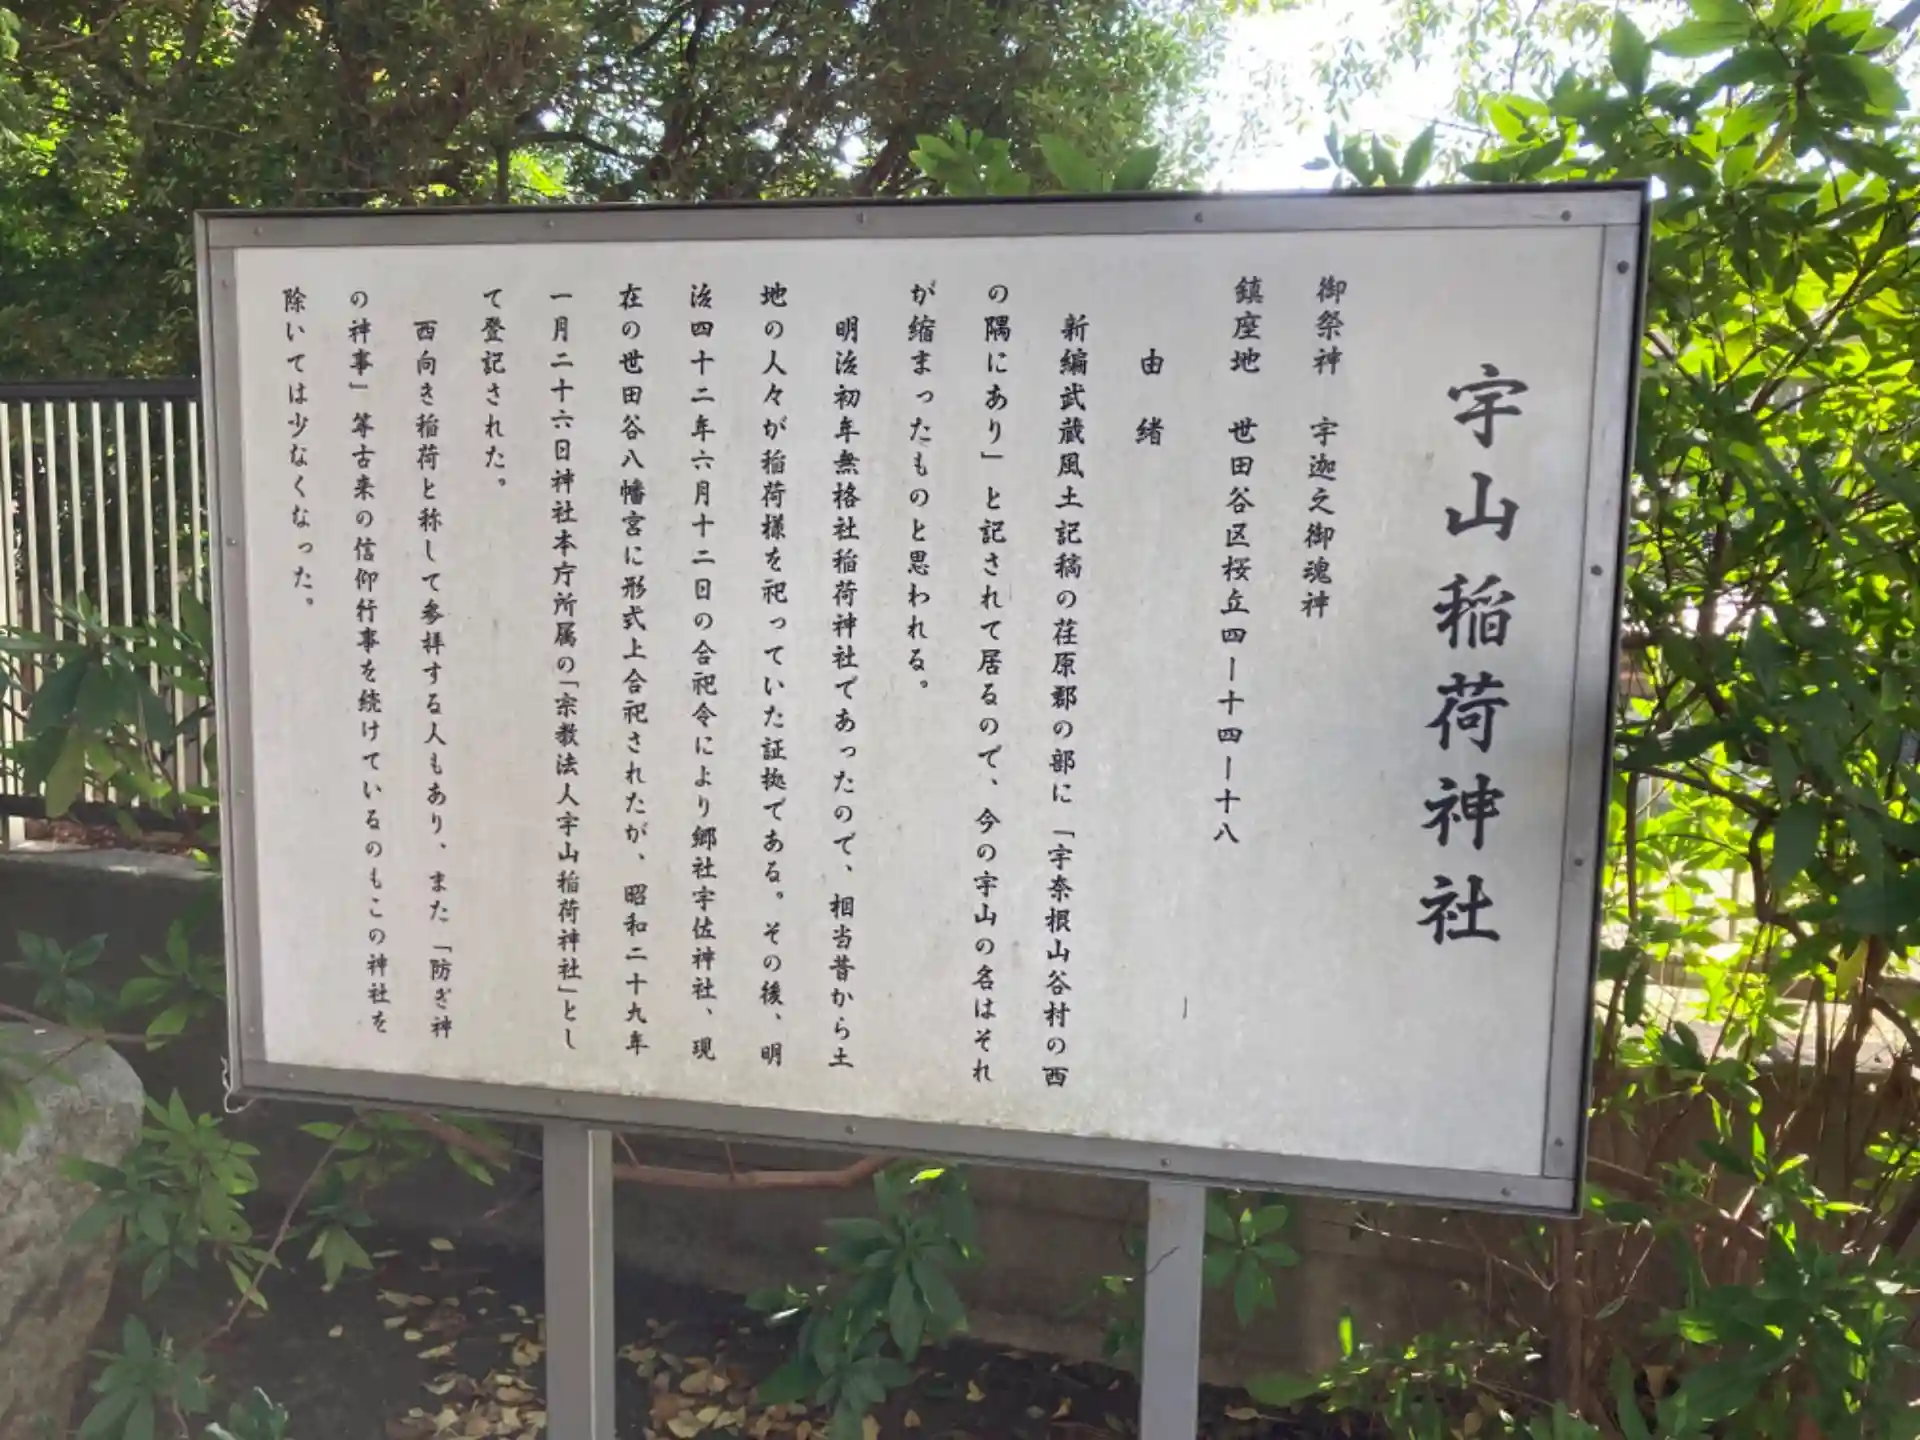 宇山稲荷神社
御祭神　宇迦之御魂神
鎮座地　世田谷区桜丘四ー十四ー十八
由　緒
新編武蔵風土記稿の荏原郡の部に「宇奈根山谷村の西
の隅にあり」と記されて居るので、今の宇山の名はそれ
が縮まったものと思われる。
明治初年無格社稲荷神社であったので、相当昔から土
地の人々が稲荷様を祀っていた証拠である。その後、明
治四十二年六月十二日の合祀令により郷社宇佐神社、現
在の世田谷八幡宮に形式上合祀されたが、昭和二十九年
一月二十六日神社本庁所属の「宗教法人宇山稲荷神社」とし
て登記された。
西向き稲荷と称して参拝する人もあり、また「防ぎ神
の神事」等古来の信仰行事を続けているのもこの神社を
除いては少なくなった。